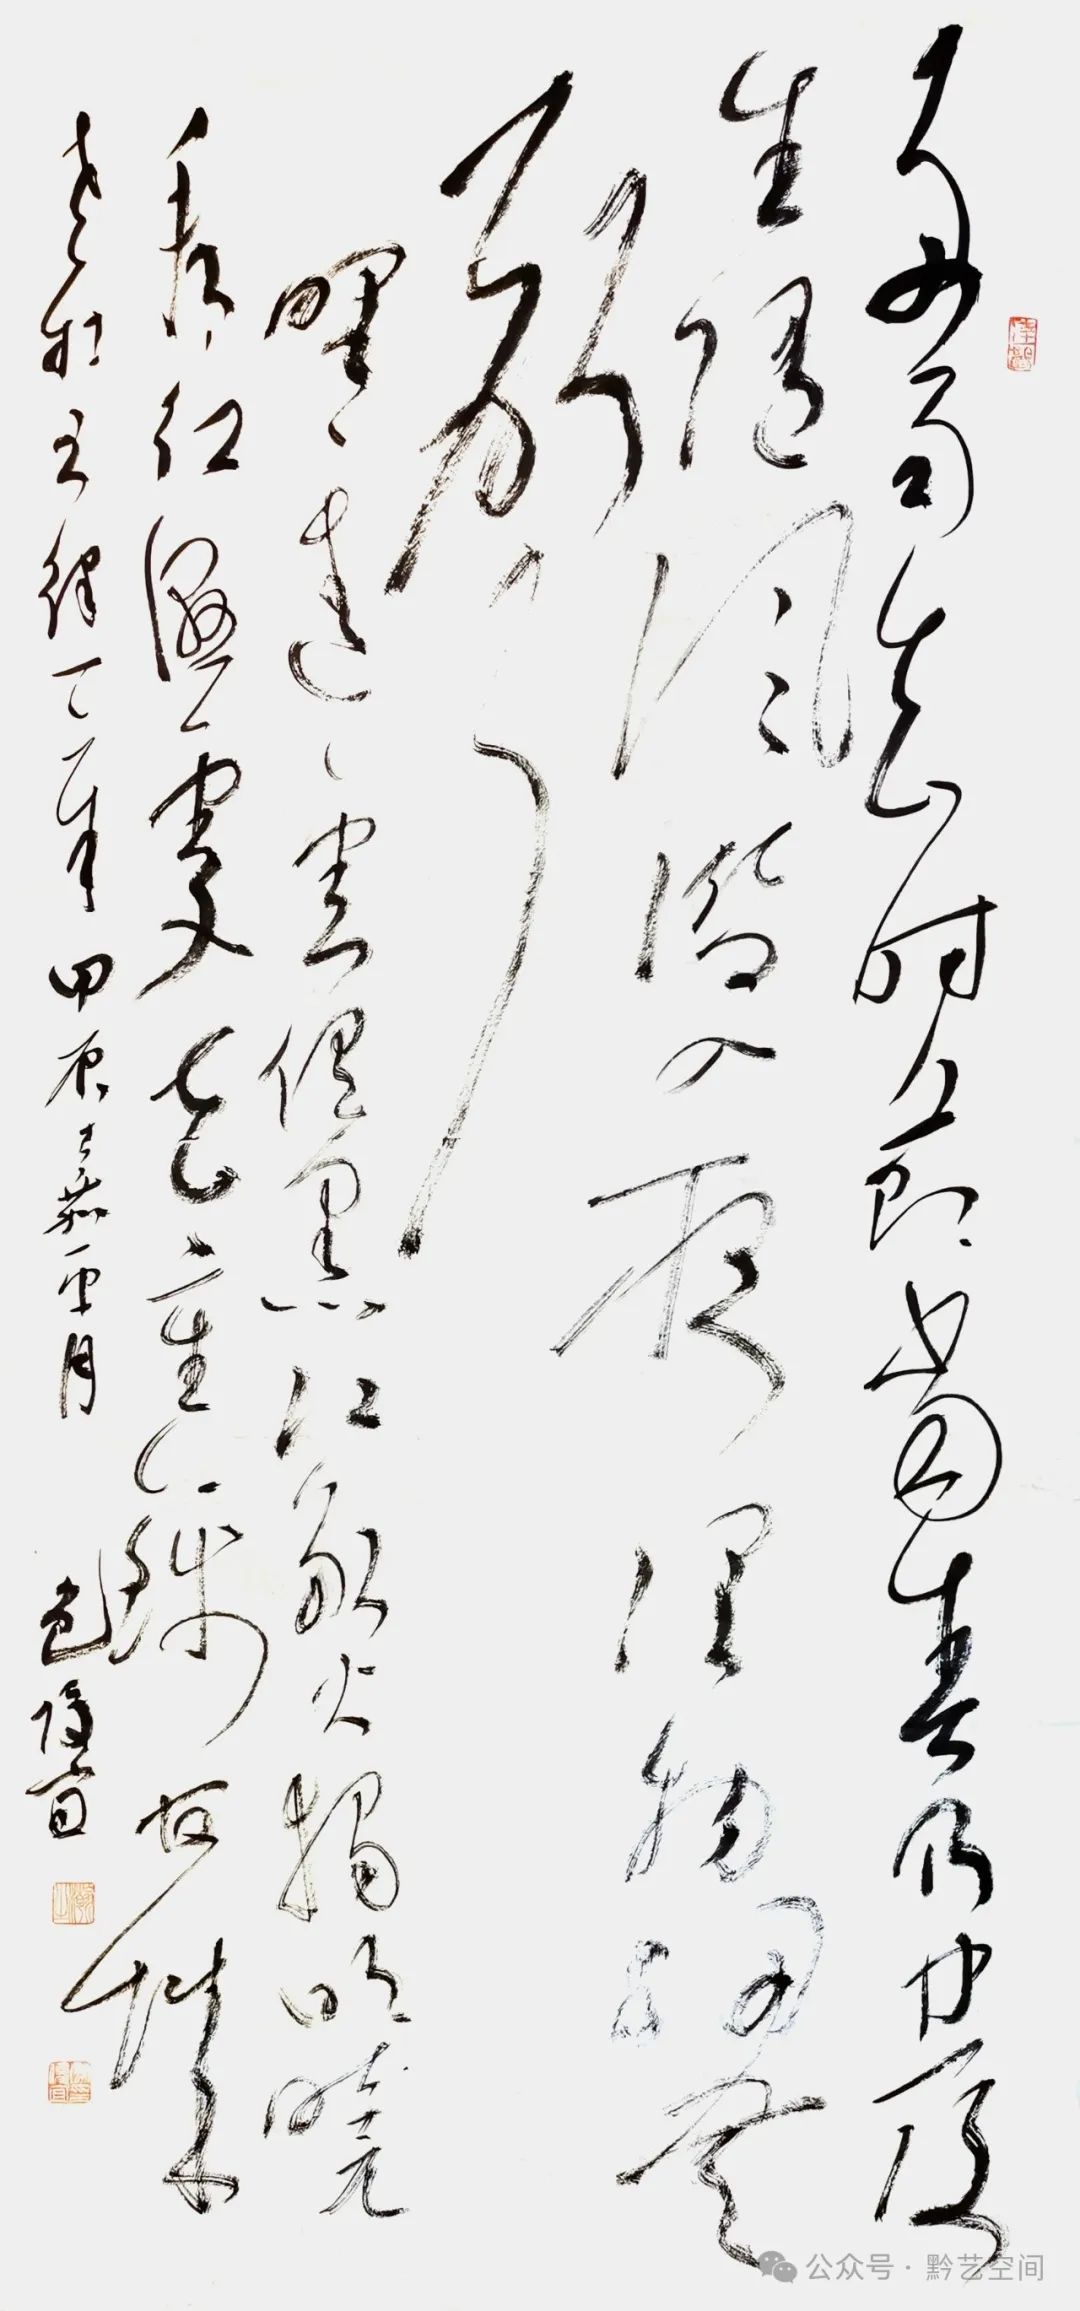 好雨知时节当春乃发
生随风潜入夜润物细无
声
野径云俱黑江船火独明晓
看红湿处花重锦官城
老杜五律 甲辰嘉平月
公众号 · 黔艺空间